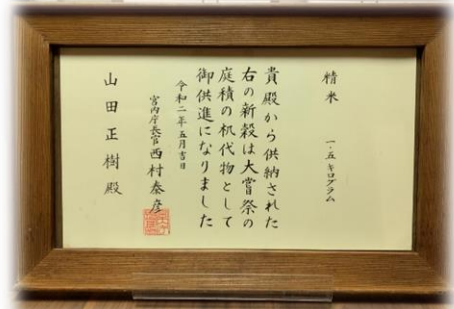 精米　一・五キログラム
貴殿から供納された
右の新穀は大嘗祭の
庭積の机代物として
御供進になりました
令和二年五月吉日
宮内庁長官 西村泰彦
山田正樹殿